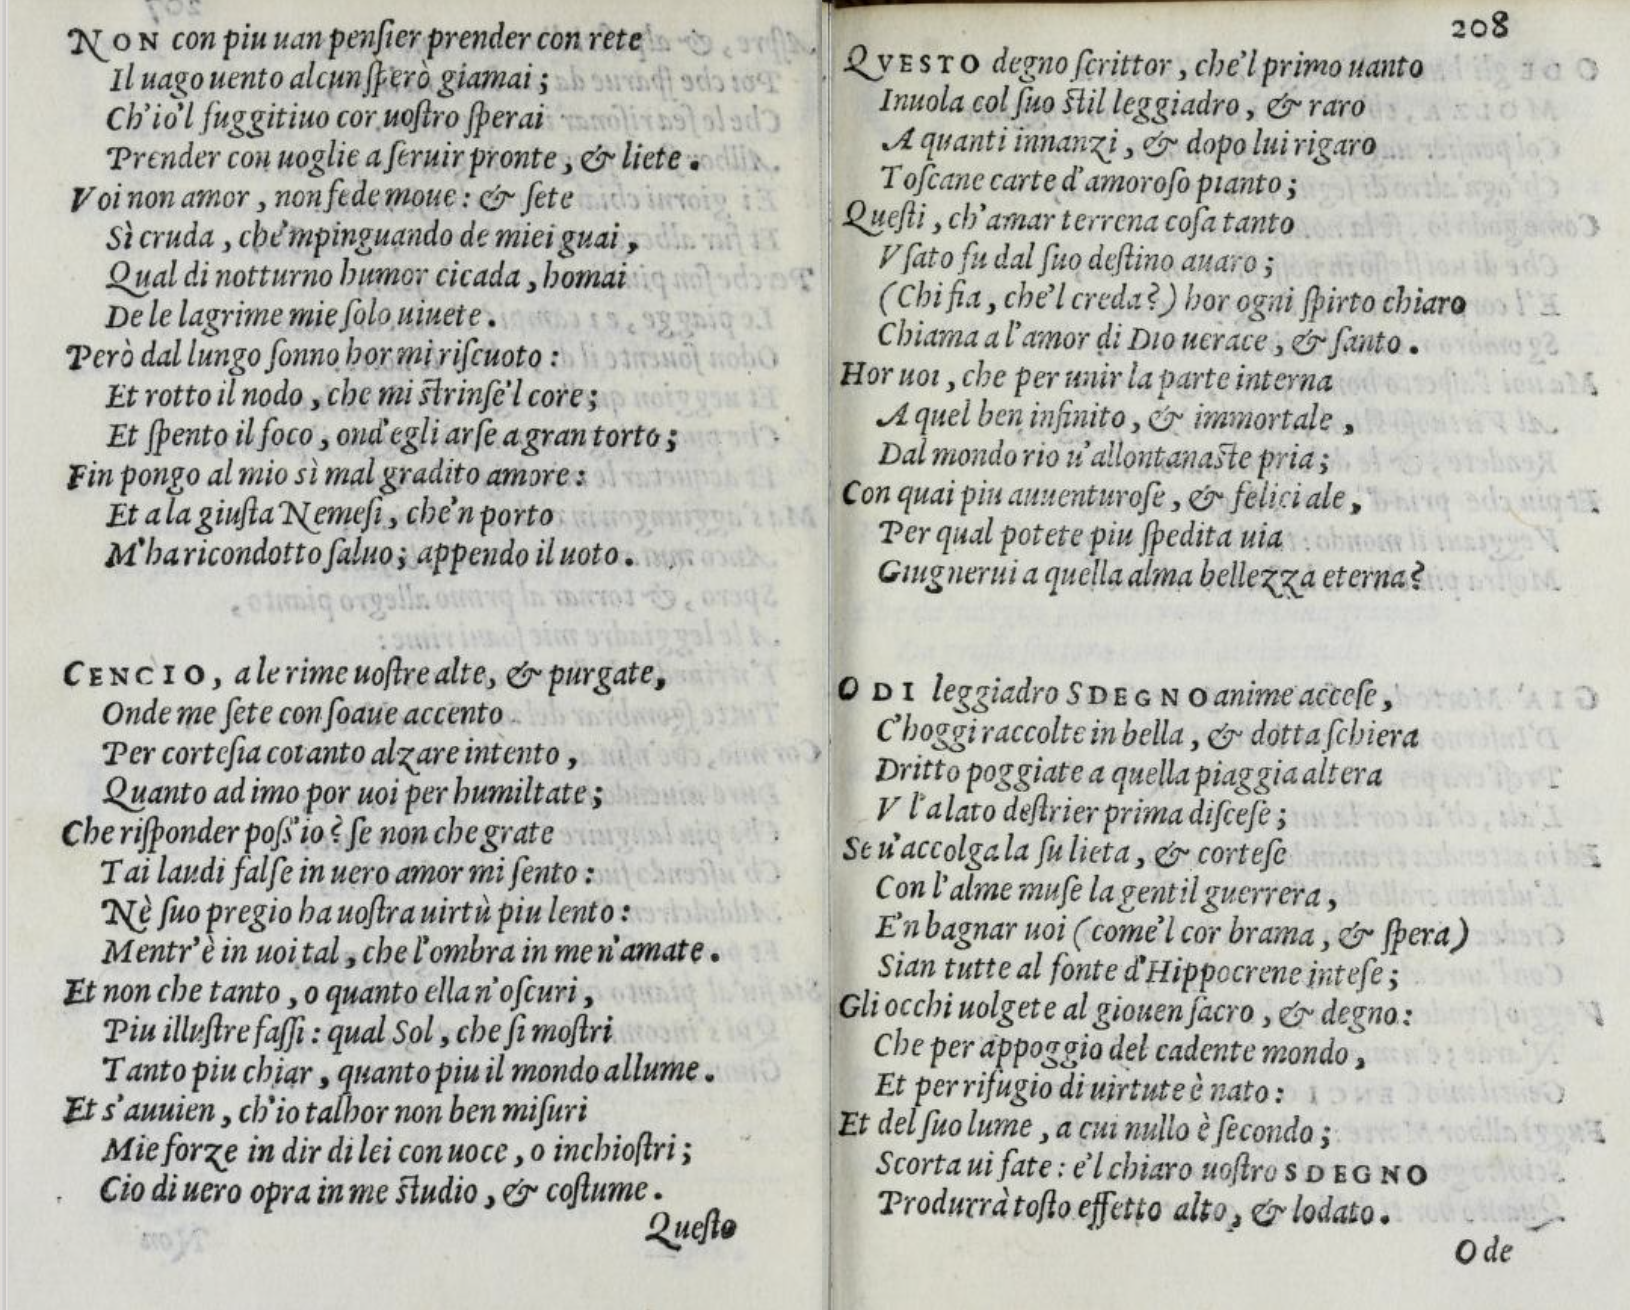 NON con piu uan penſier prender con rete
Il uago uento alcun ſperò giamai;
Ch'io'l fuggitiuo cor uoſtro ſperai
Prender con uoglie a ſeruir pronte, & liete.
Voi non amor, non fede moue: & ſete
Sì cruda, che'mpinguando de miei guai,
Qual di notturno humor cicada, homai
De le lagrime mie ſolo uiuete.
Però dal lungo ſonno hor mi riſcuoto:
Et rotto il nodo, che mi ſtrinſe'l core;
Et ſpento il foco, ond'egli arſe a gran torto;
Fin pongo al mio sì mal gradito amore:
Et a la giuſta Nemeſi, che'n porto
M'ha ricondotto ſaluo; appendo il uoto.
CENCIO, a le rime uoſtre alte, & purgate,
Onde me ſete con ſoaue accento
Per corteſia cotanto alzare intento,
Quanto ad imo por uoi per humiltate;
Che riſponder poſſ'io? ſe non che grate
Tai laudi falſe in uero amor mi ſento:
Nè ſuo pregio ha uoſtra uirtù piu lento:
Mentr'è in uoi tal, che l'ombra in me n'amate.
Et non che tanto, o quanto ella n'oſcuri,
Piu illuſtre faſſi: qual Sol, che ſi moſtri
Tanto piu chiar, quanto piu il mondo allume.
Et s'auuien, ch'io talhor non ben miſuri
Mie forze in dir di lei con uoce, o inchioſtri;
Cio di uero opra in me ſtudio, & coſtume.
Queſto
208
QVESTO degno ſcrittor, che'l primo uanto
Inuola col ſuo ſtil leggiadro, & raro
A quanti innanzi, & dopo lui rigaro
Toſcane carte d'amoroſo pianto;
Queſti, ch'amar terrena coſa tanto
Vſato fu dal ſuo deſtino auaro;
(Chi fia, che'l creda?) hor ogni ſpirto chiaro
Chiama a l'amor di DIO uerace, & ſanto.
Hor uoi, che per unir la parte interna
A quel ben infinito, & immortale,
Dal mondo rio u'allontanaſte pria;
Con quai piu auuenturoſe, & felici ale,
Per qual potete piu ſpedita uia
Giugnerui a quella alma bellezza eterna?
O DI leggiadro SDEGNO anime acceſe,
C'hoggi raccolte in bella, & dotta ſchiera
Dritto poggiate a quella piaggia altera
V l'alato deſtrier prima diſceſe;
Se u'accolga la ſu lieta, & corteſe
Con l'alme muſe la gentil guerrera,
E'n bagnar uoi (come'l cor brama, & ſpera)
Sian tutte al fonte d'Hippocrene inteſe;
Gli occhi uolgete al giouen ſacro, & degno:
Che per appoggio del cadente mondo,
Et per rifugio di uirtute è nato:
Et del ſuo lume, a cui nullo è ſecondo;
Scorta ui fate: e'l chiaro uoſtro SDEGNO
Produrrà toſto effetto alto, & lodato.
Ode